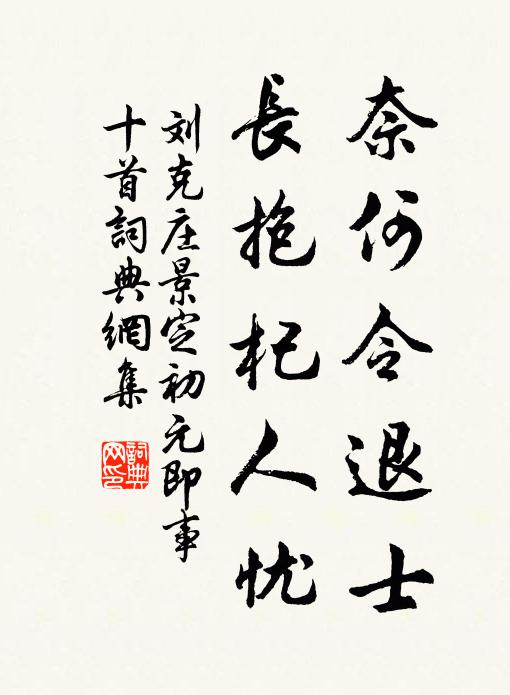 奈何令退士
長抱杞人忧
刘克庄景定初元即事
十首詞典網集
詞典網印